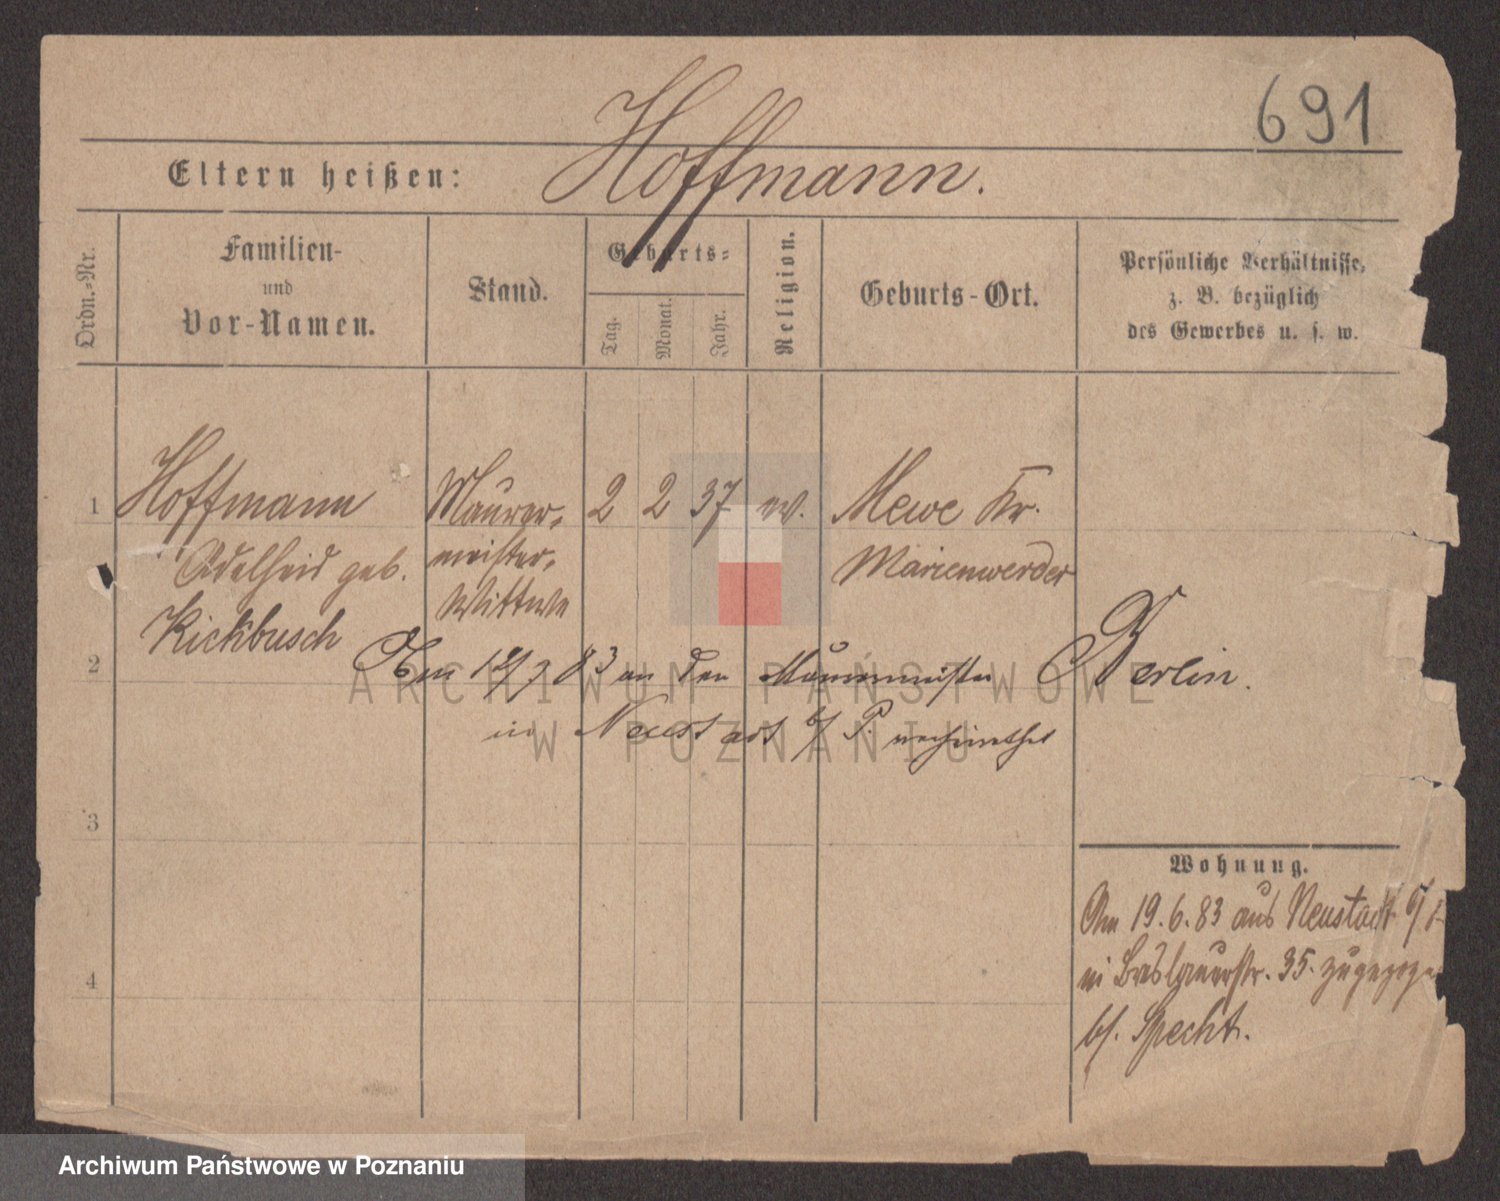 691
Eltern heißen: Hoffmann.
Ordn.-Nr.
Familien-
und
Vor-Namen.
Stand.
Geburts-
Tag.
Monat.
Jahr.
Religion.
Geburts-Ort.
Persönliche Verhältnisse,
z. B. bezüglich
des Gewerbes u. s. w.
1 Hoffmann Maurer- 2 2 37 ev. Mewe Kr.
Adelheid geb. meister- Marienwerder
Kickbusch Wittwe
2
Am 83 an den Maurermeister Berlin.
in Neustadt b/ P. verheirathet
3
4
Wohnung.
Am 19.6.83 aus Neustadt b/
in Breslauerstr. 35. zugezoge
bf. Specht.
ARCHIWUM PAŃSTWOWE
W POZNANIU
Archiwum Państwowe w Poznaniu